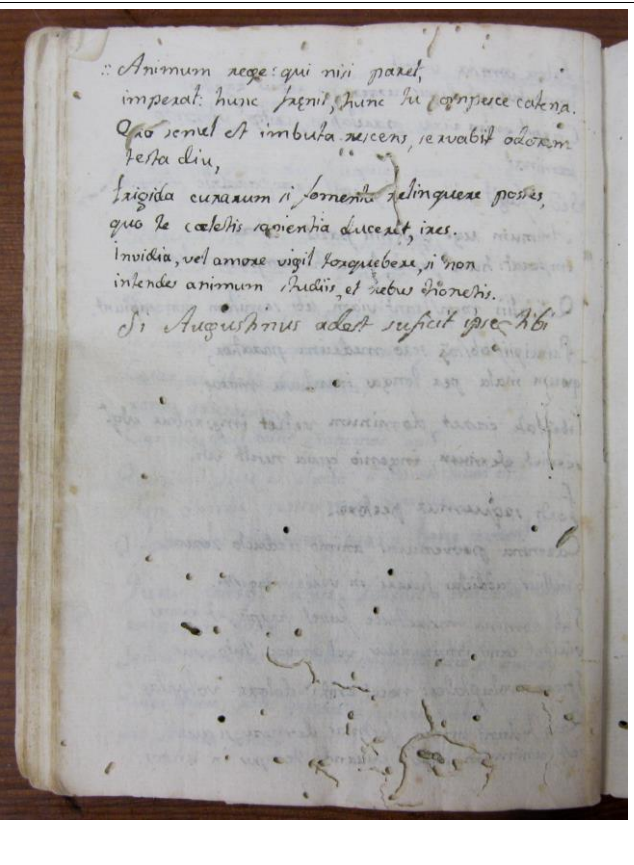 :: Animum rege: qui nisi paret,
imperat: hunc frenis, hunc tu conpesce catena.
Quo semel est imbuta rescens, servabit odorem
testa diu,
frigida curarum si fomenta relinquere posses,
quo te cœlestis sapientia duceret, ires.
Invidia, vel amore vigil torquebere, si non
intendes animum studiis, et rebus honestis.
Si Augustinus adest suficit ipse tibi